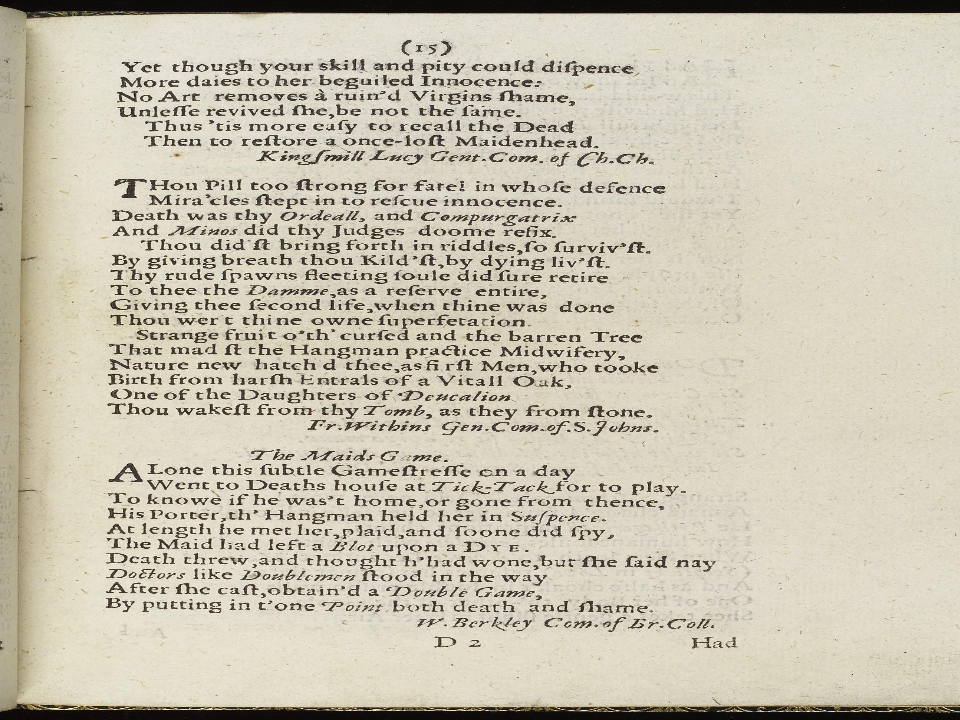 (15)
Yet though your skill and pity could diſpence
More daies to her beguiled Innocence:
No Art removes à ruin'd Virgins ſhame,
Unleſſe revived ſhe,be not the ſame.
Thus 'tis more eaſy to recall the Dead
Then to reſtore a once-loſt Maidenhead.
Kingſmill Lucy Gent.Com. of Ch.Ch.
THou Pill too ſtrong for fate! in whoſe defence
Mira'cles ſtept in to reſcue innocence.
Death was thy Ordeall, and Compurgatrix
And Minos did thy Judges doome refix.
Thou did'ſt bring forth in riddles,ſo ſurviv'ſt.
By giving breath thou Kild'ſt,by dying liv'ſt.
Thy rude ſpawns fleeting ſoule did ſure retire
To thee the Damme,as a reſerve entire,
Giving thee ſecond life,when thine was done
Thou wer't thine owne ſuperfetation.
Strange fruit o'th' curſed and the barren Tree
That mad'ſt the Hangman practice Midwifery,
Nature new hatch'd thee,as firſt Men,who tooke
Birth from harſh Entrals of a Vitall Oak,
One of the Daughters of Deucalion
Thou wakeſt from thy Tomb, as they from ſtone.
Fr.Withins Gen.Com.of.S.Johns.
The Maids Game.
ALone this ſubtle Gameſtreſſe on a day
Went to Deaths houſe at Tick-Tack for to play.
To knowe if he was't home,or gone from thence,
His Porter,th' Hangman held her in Suſpence.
At length he met her,plaid,and ſoone did ſpy,
The Maid had left a Blot upon a DYE.
Death threw,and thought h'had wone,but ſhe ſaid nay
Doctors like Doublemen ſtood in the way
After ſhe caſt,obtain'd a Double Game,
By putting in t'one Point both death and ſhame.
W.Berkley Com.of Br.Coll.
D 2 Had